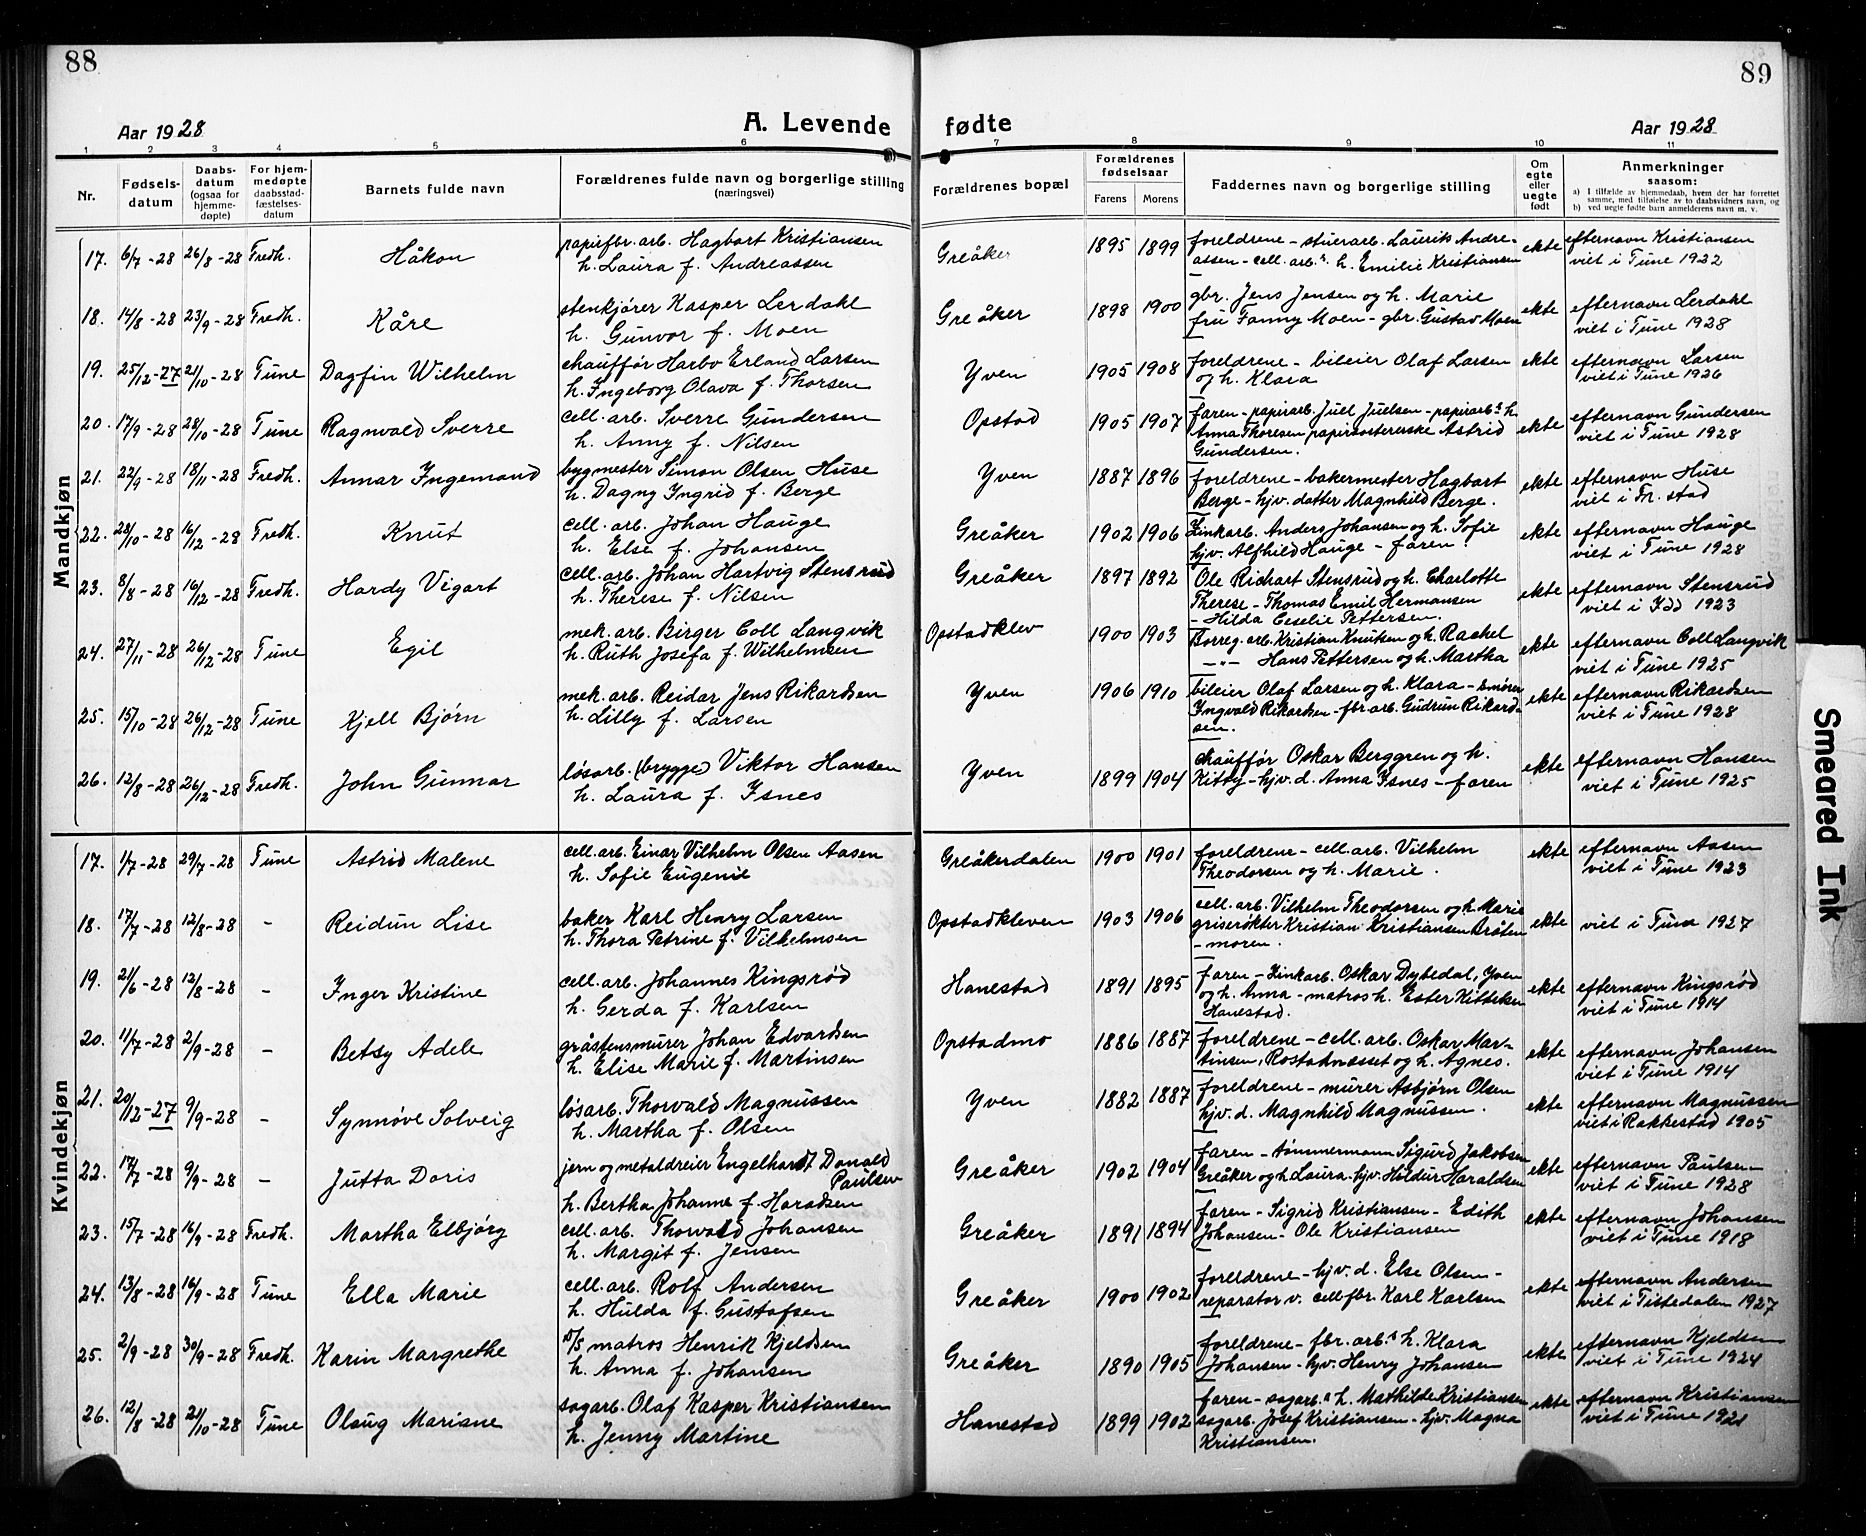 88
89
Aar 1928
A. Levende fødte
Aar 1928
1 2 3 4 5 6 7 8 9 10 11
Nr.
Fødsels-
datum
Daabs-
datum
(ogsaa for
hjemme-
døpte)
For hjem-
medøpte
daabsstad-
fæstelses-
datum
Barnets fulde navn
Forældrenes fulde navn og borgerlige stilling
(næringsvei)
Forældrenes bopæl
Forældrenes
fødselsaar
Farens
Morens
Faddernes navn og borgerlige stilling
Om
egte
eller
uegte
født
Anmerkninger
saasom:
a) I tilfælde av hjemmedaab, hvem der har forrettet
samme, med tilføielse av to daabsvidners navn, og
b) ved uegte fødte barn anmelderens navn m. v.
Mandkjøn
17. 6/7-28 26/8-28 Fredh. Håkon papirfbr. arb. Hagbart Kristiansen Greåker 1895 1899 foreldrene - stuerarb. Laurits Andre- ekte efternavn Kristiansen
h. Laura f. Andreassen assen - cell. arb.s h. Emilie Kristiansen viet i Tune 1922
18. 14/8-28 23/9-28 Fredh. Kåre stenkjører Kasper Lerdahl Greåker 1898 1900 gbr. Jens Jensen og h. Marie ekte efternavn Lerdahl
h. Gunvor f. Moen fru Fanny Moen - gbr. Gustav Moen viet i Tune 1928
19. 25/12-27 21/10-28 Tune Dagfin Wilhelm chauffør Harbo Erland Larsen Yven 1905 1908 foreldrene - bileier Olaf Larsen ekte efternavn Larsen
h. Ingeborg Olava f. Thorsen og h. Klara viet i Tune 1926
20. 17/9-28 28/10-28 Tune Ragnvald Sverre cell. arb. Sverre Gundersen Opstad 1905 1907 faren - papirarb. Juel Juelsen - papirarb.s h. ekte efternavn Gundersen
h. Anny f. Nilsen Anna Thoresen papirsortererske Astrid viet i Tune 1928
Gundersen.
21. 22/9-28 18/11-28 Fredh. Annar Ingemand bygmester Simon Olsen Huse Yven 1887 1896 foreldrene - bakermester Hagbart ekte efternavn Huse
h. Dagny Ingrid f. Berge Berge - hjv. datter Magnhild Berge. viet i Fr. stad
22. 28/10-28 16/12-28 Fredh. Knut cell. arb. Johan Hauge Greåker 1902 1906 Zinkarb. Anders Johansen og h. Sofie ekte efternavn Hauge
h. Else f. Johansen hjv. Alfhild Hauge - faren. viet i Tune 1928
23. 8/8-28 16/12-28 Fredh. Hardy Vigart cell. arb. Johan Hartvig Stensrud Greåker 1897 1892 Ole Richart Stensrud og h. Charlotte ekte efternavn Stensrud
h. Therese f. Nilsen Therese - Thomas Emil Hermansen viet i Idd 1923
- Hilda Ceselie Pettersen.
24. 27/11-28 26/12-28 Tune Egil mek. arb. Birger Coll Langvik Opstadklev 1900 1903 Borreg. arb. Kristian Knutsen og h. Rachel ekte efternavn Coll Langvik
h. Ruth Josefa f. Wilhelmsen -"- Hans Pettersen og h. Martha viet i Tune 1925
25. 15/10-28 26/12-28 Tune Kjell Bjørn mek. arb. Reidar Jens Rikardsen Yven 1906 1910 bileier Olaf Larsen og h. Klara - smører ekte efternavn Rikardsen
h. Lilly f. Larsen Ingvald Rikardsen - fbr. arb. Gudrun Rikard- viet i Tune 1928
sen.
26. 12/8-28 26/12-28 Fredh. John Gunnar løsarb. (brygge) Viktor Hansen Yven 1899 1904 chauffør Oskar Berggren og h. ekte efternavn Hansen
h. Laura f. Isnes Kitty - hjv. d. Anna Isnes - faren viet i Tune 1925
Kvindekjøn
17. 1/7-28 29/7-28 Tune Astrid Malene cell. arb. Einar Vilhelm Olsen Aasen Greåkerdalen 1900 1901 foreldrene - cell. arb. Vilhelm ekte efternavn Aasen
h. Sofie Eugenie Theodorsen og h. Marie. viet i Tune 1923
18. 17/7-28 12/8-28 - Reidun Lise baker Karl Henry Larsen Opstadkleven 1903 1906 cell. arb. Vilhelm Theodorsen og h. Marie ekte viet i Tune 1927
h. Thora Petrine f. Vilhelmsen griserøkter Kristian Kristiansen Bråten
- moren.
19. 21/6-28 12/8-28 - Inger Kristine cell. arb. Johannes Kingsrød Hanestad 1891 1895 faren - Zinkarb. Oskar Dybedal, Yven ekte efternavn Kingsrød
h. Gerda f. Karlsen og h. Anna - matros h. Ester Kittelsen viet i Tune 1914
Hanestad.
20. 11/7-28 2/9-28 - Betsy Adele gråstensmurer Johan Edvardsen Opstadmo 1886 1887 foreldrene - cell. arb. Oskar Mar- ekte efternavn Johansen
h. Elise Marie f. Martinsen tinsen, Rostadnæsset og h. Agnes. viet i Tune 1914
21. 20/12-27 9/9-28 - Synnøve Solveig løsarb. Thorvald Magnussen Yven 1882 1887 foreldrene - murer Asbjørn Olsen ekte efternavn Magnussen
h. Martha f. Olsen hjv. d. Magnhild Magnussen. viet i Rakkestad 1905
22. 17/7-28 9/9-28 - Jutta Doris jern og metaldreier Engelhardt Donald Greåker 1902 1904 faren - tømmermann Sigurd Jakobsen ekte efternavn Paulsen
Paulsen Greåker og h. Laura - hjv. Hildur Haraldsen viet i Tune 1928
h. Bertha Johanne f. Haraldsen
23. 15/7-28 16/9-28 Fredh. Martha Elbjørg cell. arb. Thorvald Johansen Greåker 1891 1894 faren - Sigrid Kristiansen - Edith ekte efternavn Johansen
h. Margit f. Jensen Johansen - Ole Kristiansen viet i Tune 1918
24. 13/8-28 16/9-28 Tune Ella Marie cell. arb. Rolf Andersen Greåker 1900 1902 foreldrene - hjv. d. Else Olsen - ekte efternavn Andersen
h. Hulda f. Gustafsen reparatør v. cellfbr. Karl Karlsen viet i Tistedalen 1927
25. 2/9-28 30/9-28 Fredh. Karin Margrethe D/S matros Henrik Kjeldsen Greåker 1890 1905 foreldrene - fbr. arb.s h. Klara ekte efternavn Kjeldsen
h. Anna f. Johansen Johansen - hjv. Henry Johansen viet i Tune 1924
26. 12/8-28 21/10-28 Tune Olaug Mariane sagarb. Olaf Kasper Kristiansen Hanestad 1899 1902 faren - sagarb.s h. Mathilde Kristiansen ekte efternavn Kristiansen
h. Jenny Martine sagarb. Josef Kristiansen - hjv. Magna viet i Tune 1921
Kristiansen.
Smeared Ink